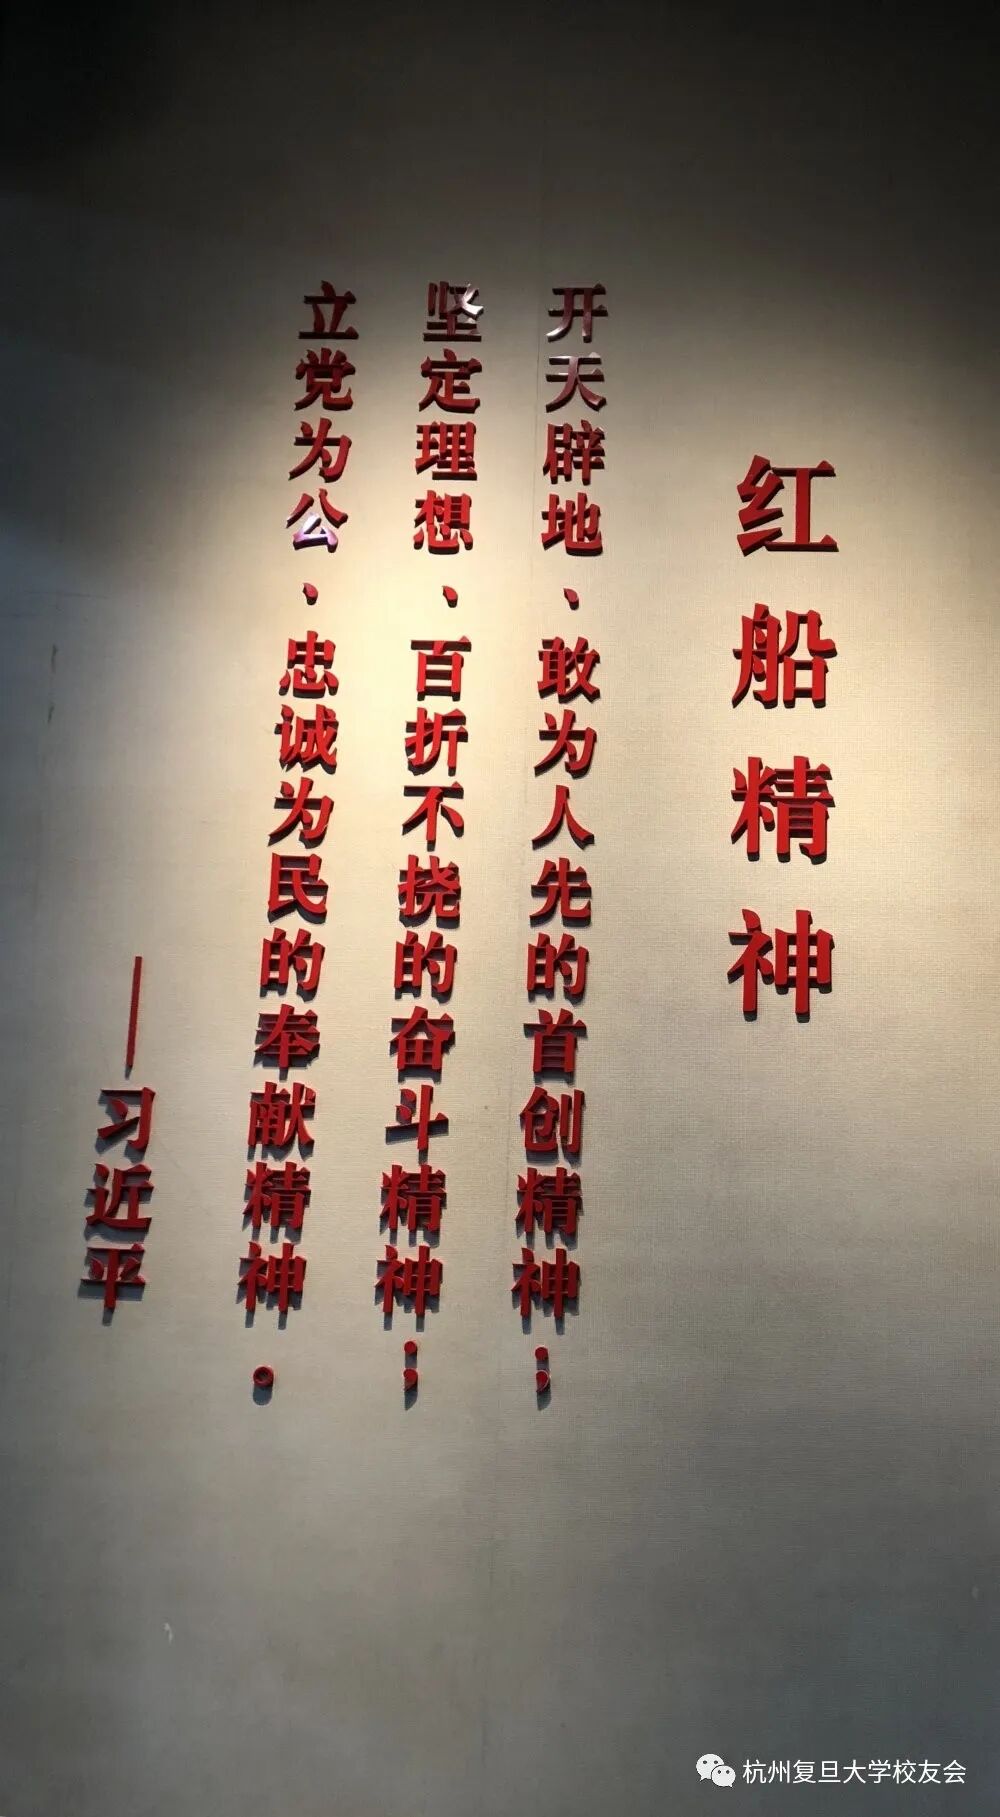 红船精神
开天辟地、敢为人先的首创精神；
坚定理想、百折不挠的奋斗精神；
立党为公、忠诚为民的奉献精神。
——习近平
杭州复旦大学校友会